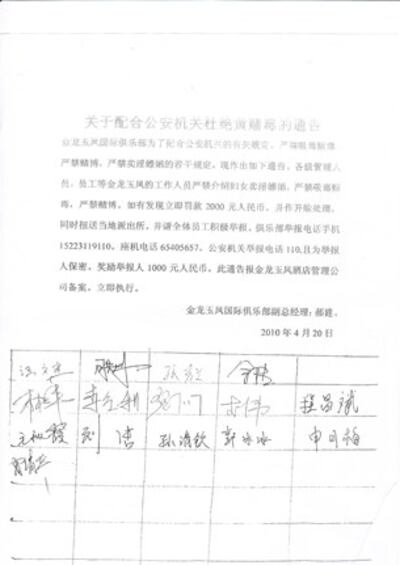 关于配合公安机关杜绝黄赌毒的通告
金龙玉凤国际俱乐部为了配合公安机关的有关规定,严禁吸毒贩毒,
严禁赌博,严禁卖淫嫖娼的若干规定。现作出如下通告,各级管理人
员、员工等金龙玉凤的工作人员严禁介绍妇女卖淫嫖娼,严禁吸毒贩
毒,严禁赌博,如有发现立即罚款 2000 元人民币,并作开除处理,
同时扭送当地派出所,并请全体员工积极举报。俱乐部举报电话手机
15223119110。座机电话 65405657。公安机关举报电话 110,且为举报
人保密,奖励举报人 1000 元人民币。此通告报金龙玉凤酒店管理公
司备案。立即执行。
金龙玉凤国际俱乐部副总经理:郝建。
2010 年 4 月 20 日
李伟
程昌斌
孙浩钦
郭冰冰
申月梅